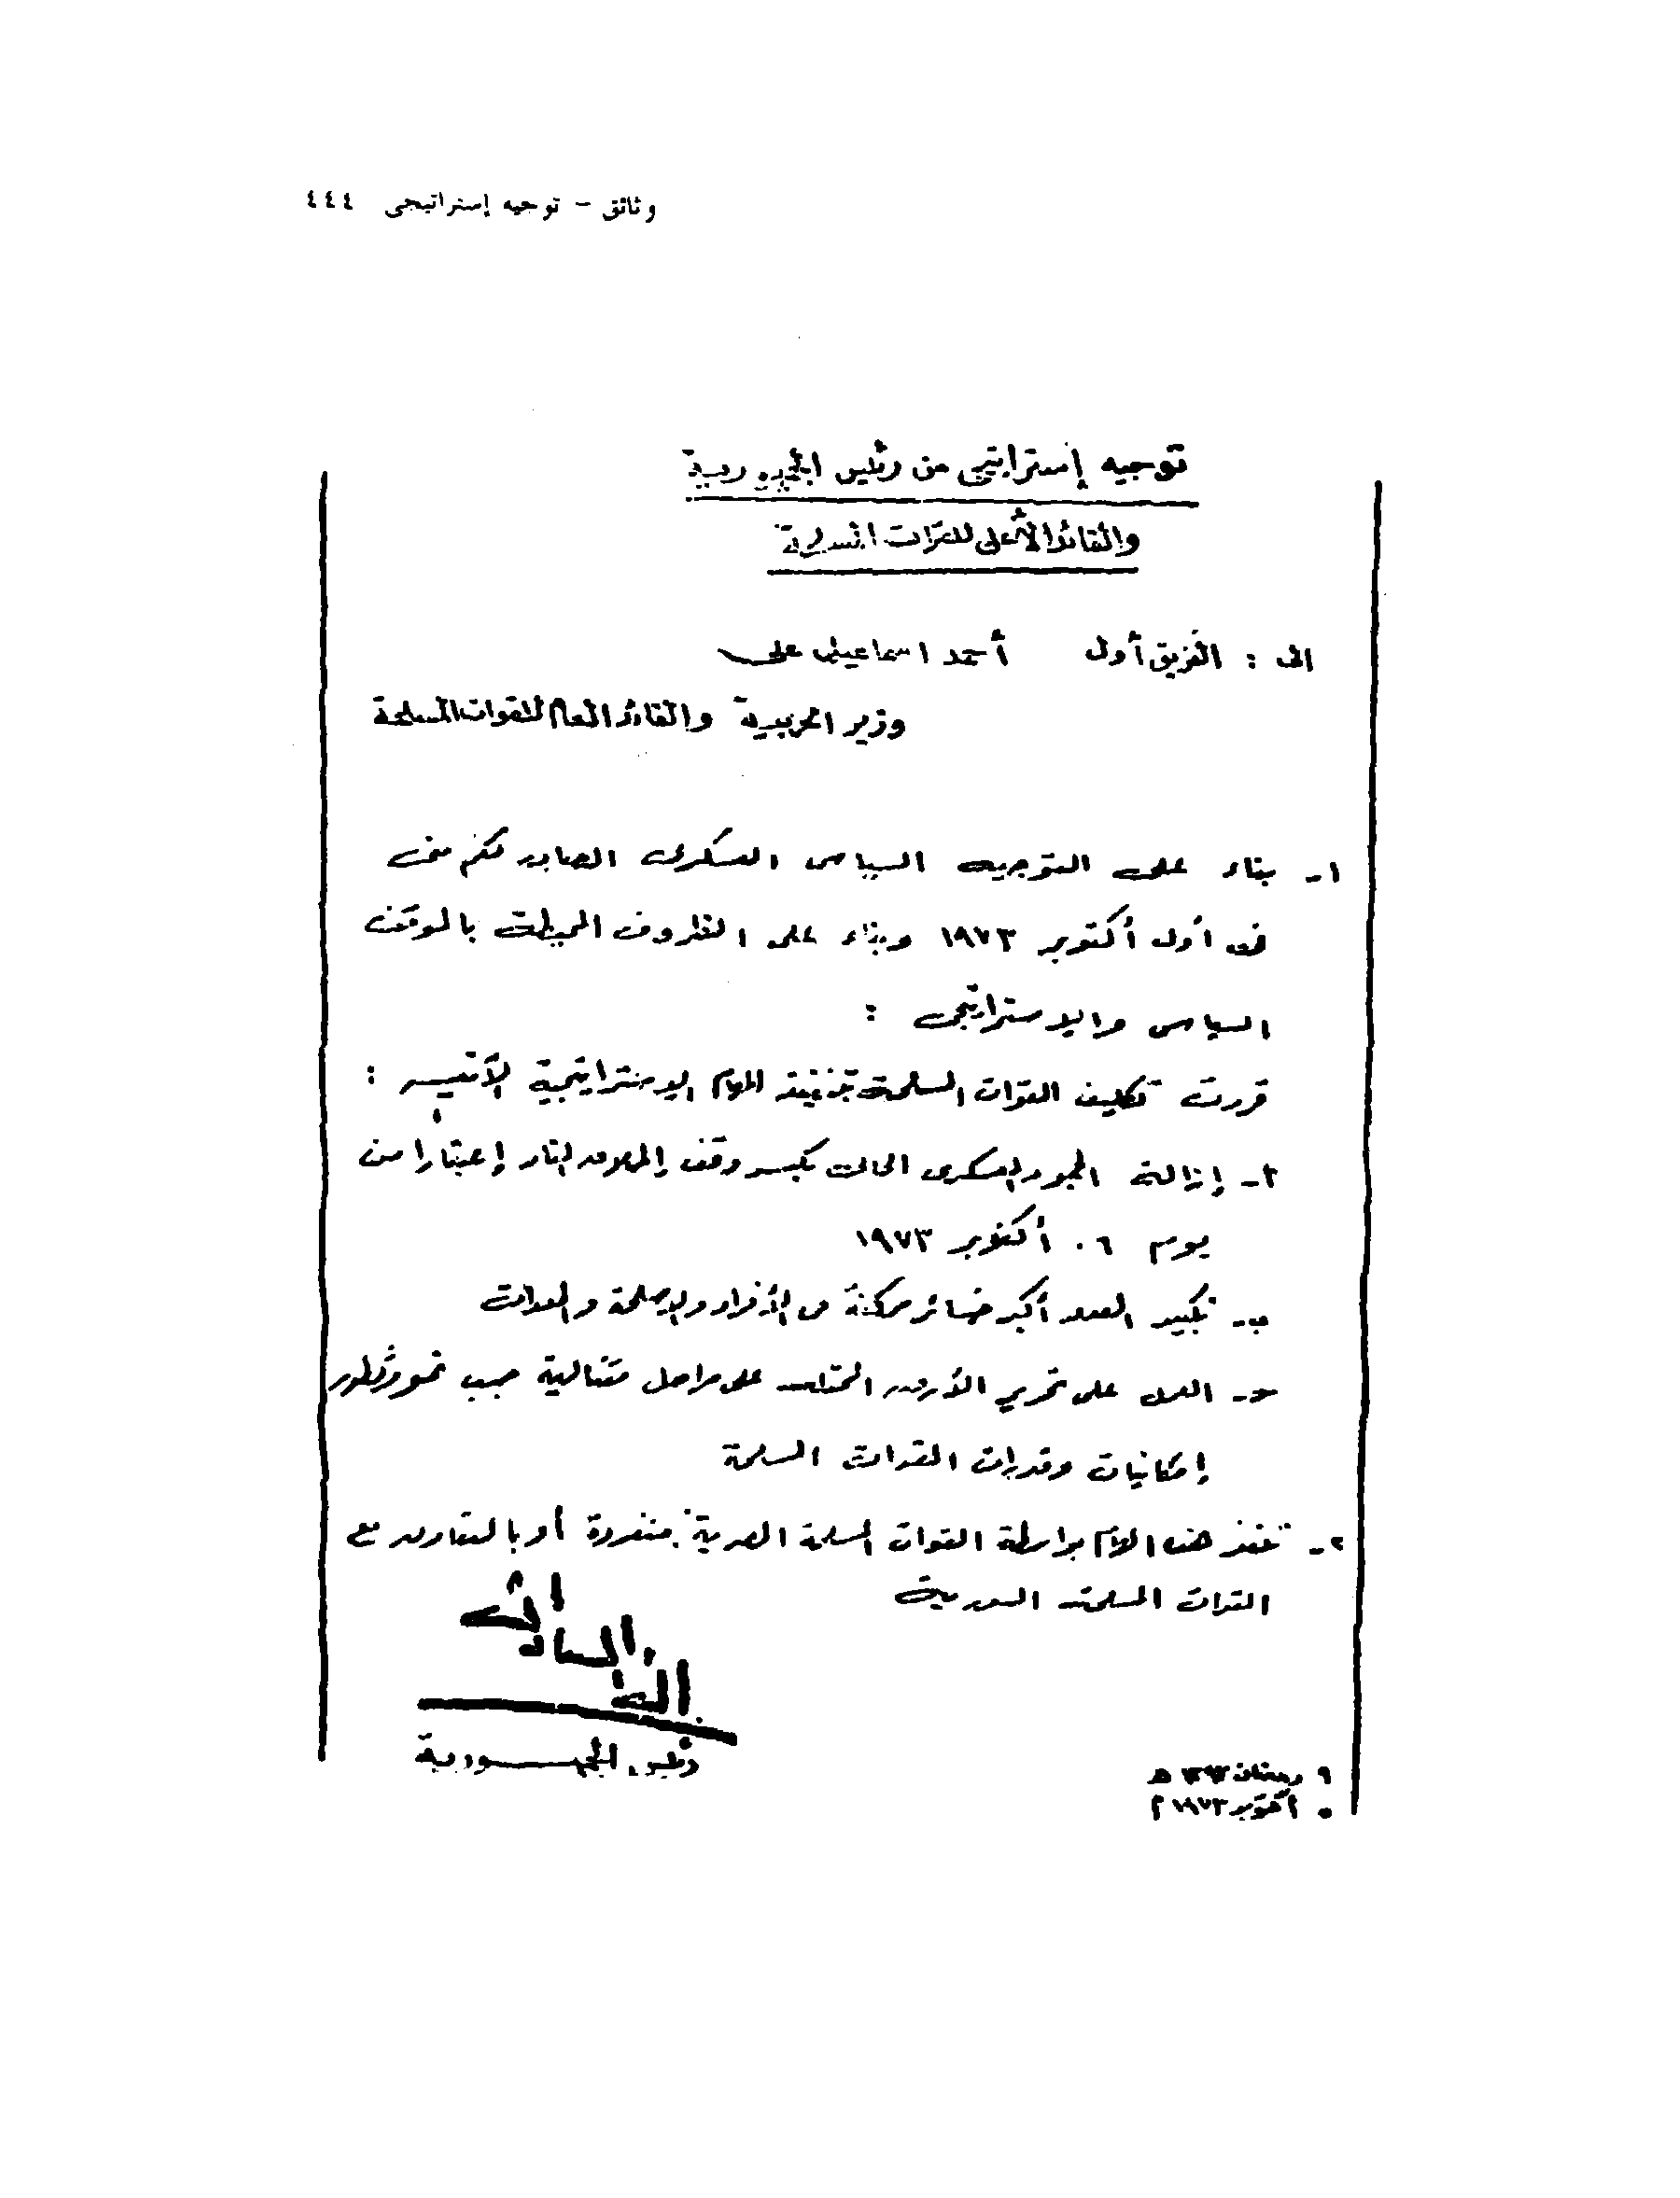 وثائق - توجيه إستراتيجى ٤٤٤
توجيه إستراتيجى من رئيس الجمهورية
والقائد الأعلى للقوات المسلحة
الى : الفريق أول أحمد اسماعيل على
وزير الحربية والقائد العام للقوات المسلحة
١- بناء على التوجيه السياسى العسكرى الصادر لكم منى
فى أول أكتوبر ١٩٧٣ وبناء على الظروف المحيطة بالموقف
السياسى والاستراتيجى :
قررت تكليف القوات المسلحة بتنفيذ المهام الاستراتيجية الآتيه :
أ- إزالة الجمود العسكرى الحالى بكسر وقف إطلاق النار إعتبارا من
يوم ٦ . أكتوبر ١٩٧٣
ب- تكبيد العدو أكبر خسائر ممكنة من الأفراد والاسلحة والمعدات
ح- العمل على تحرير الأرض المحتلة على مراحل متتالية حسب نمو وتطور
إمكانيات وقدرات القوات المسلحة
٢- تنفذ هذه المهام بواسطة القوات المسلحة المصرية منفردة أو بالتعاون مع
القوات المسلحة السورية
أنور السادات
رئيس الجمهورية
٩ رمضان ١٣٩٣ هـ
٥ أكتوبر ١٩٧٣ م